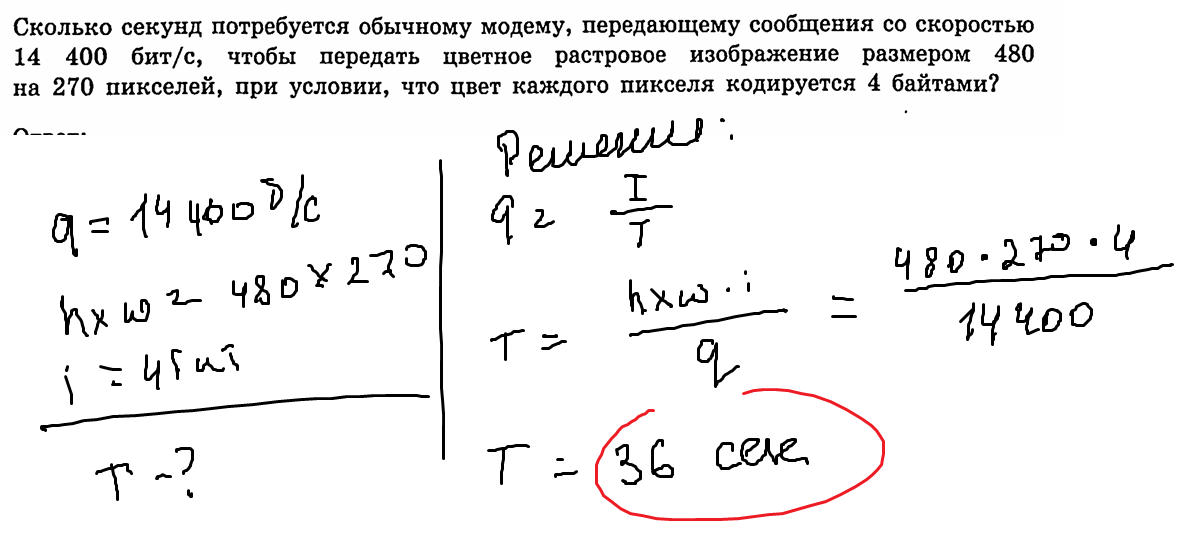 Сколько секунд потребуется обычному модему, передающему сообщения со скоростью
14 400 бит/с, чтобы передать цветное растровое изображение размером 480
на 270 пикселей, при условии, что цвет каждого пикселя кодируется 4 байтами?
Ответ:
q = 14 400 б/с
h x w = 480 x 270
i = 4 бит
T - ?
Решение:
q = I / T
T = h x w · i / q = 480 · 270 · 4 / 14 400
T = 36 сек